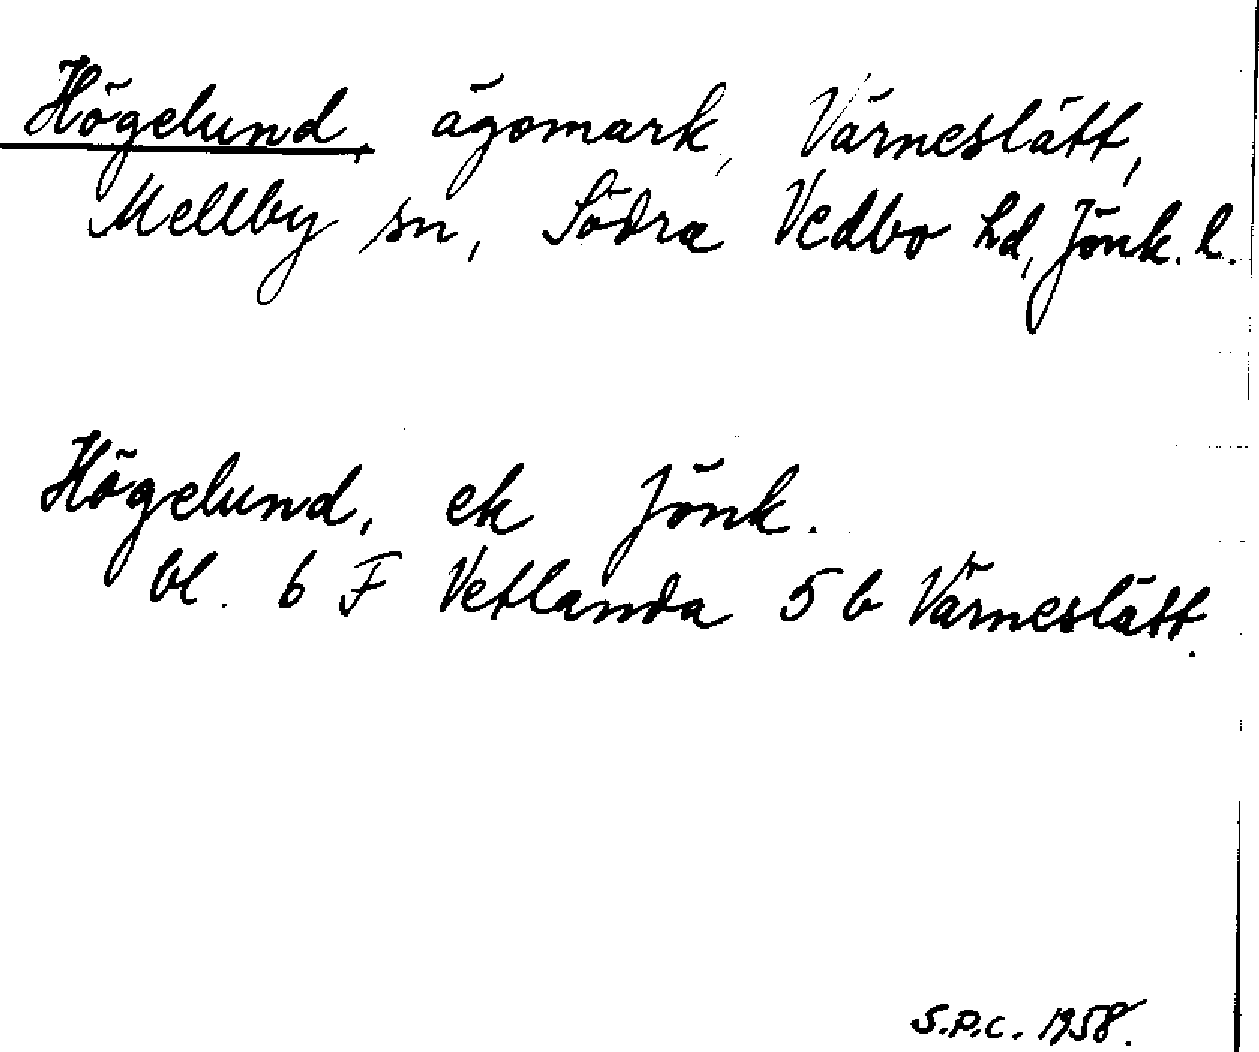 Högelund, ägomark, Värneslätt,
Mellby sn, Södra Vedbo hd, Jönk. l.
Högelund, ek Jönk.
bl. 6 F Vetlanda 5 b Värneslätt.
S.P.C. 1958.